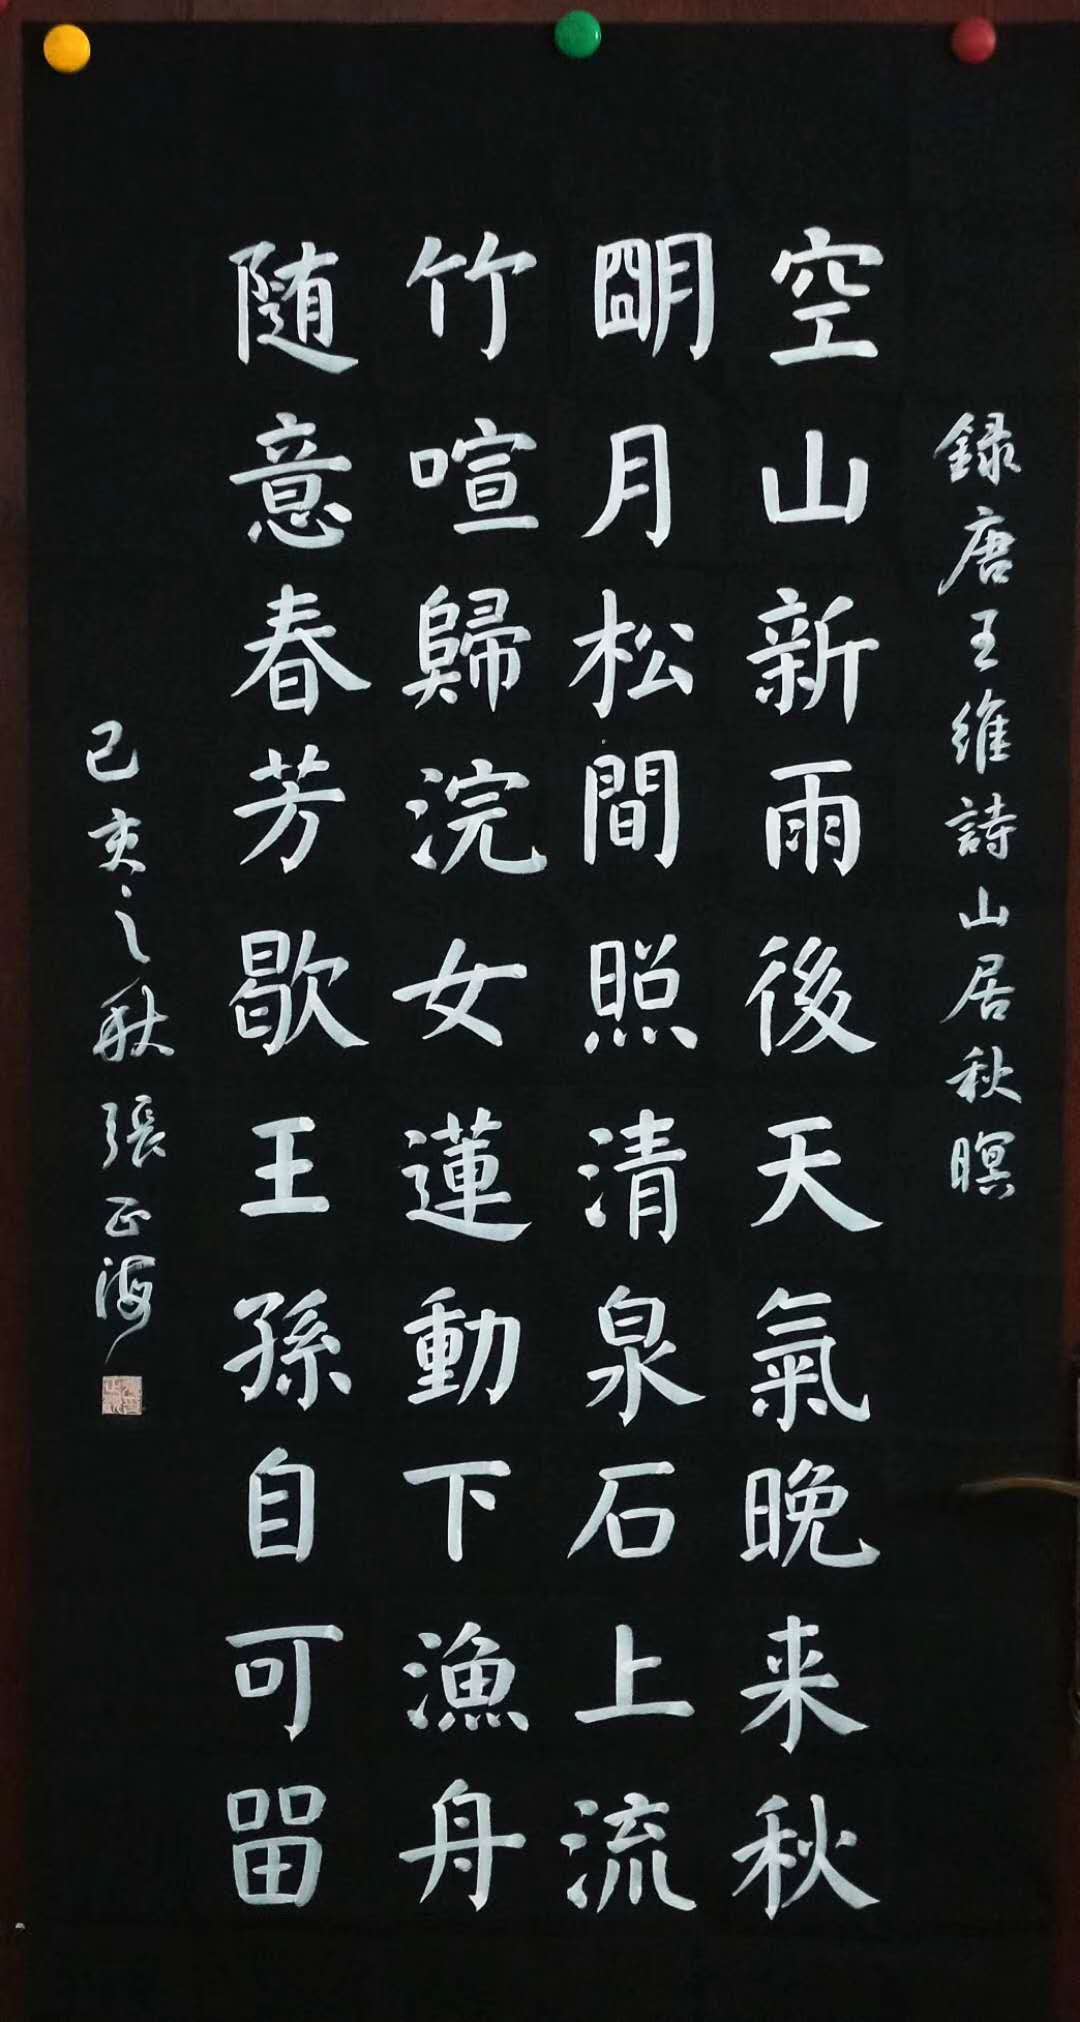 録唐王維詩山居秋暝
空山新雨後天氣晚来秋
朙月松間照清泉石上流
竹喧歸浣女蓮動下漁舟
随意春芳歇王孫自可畱
己亥之秋張正海